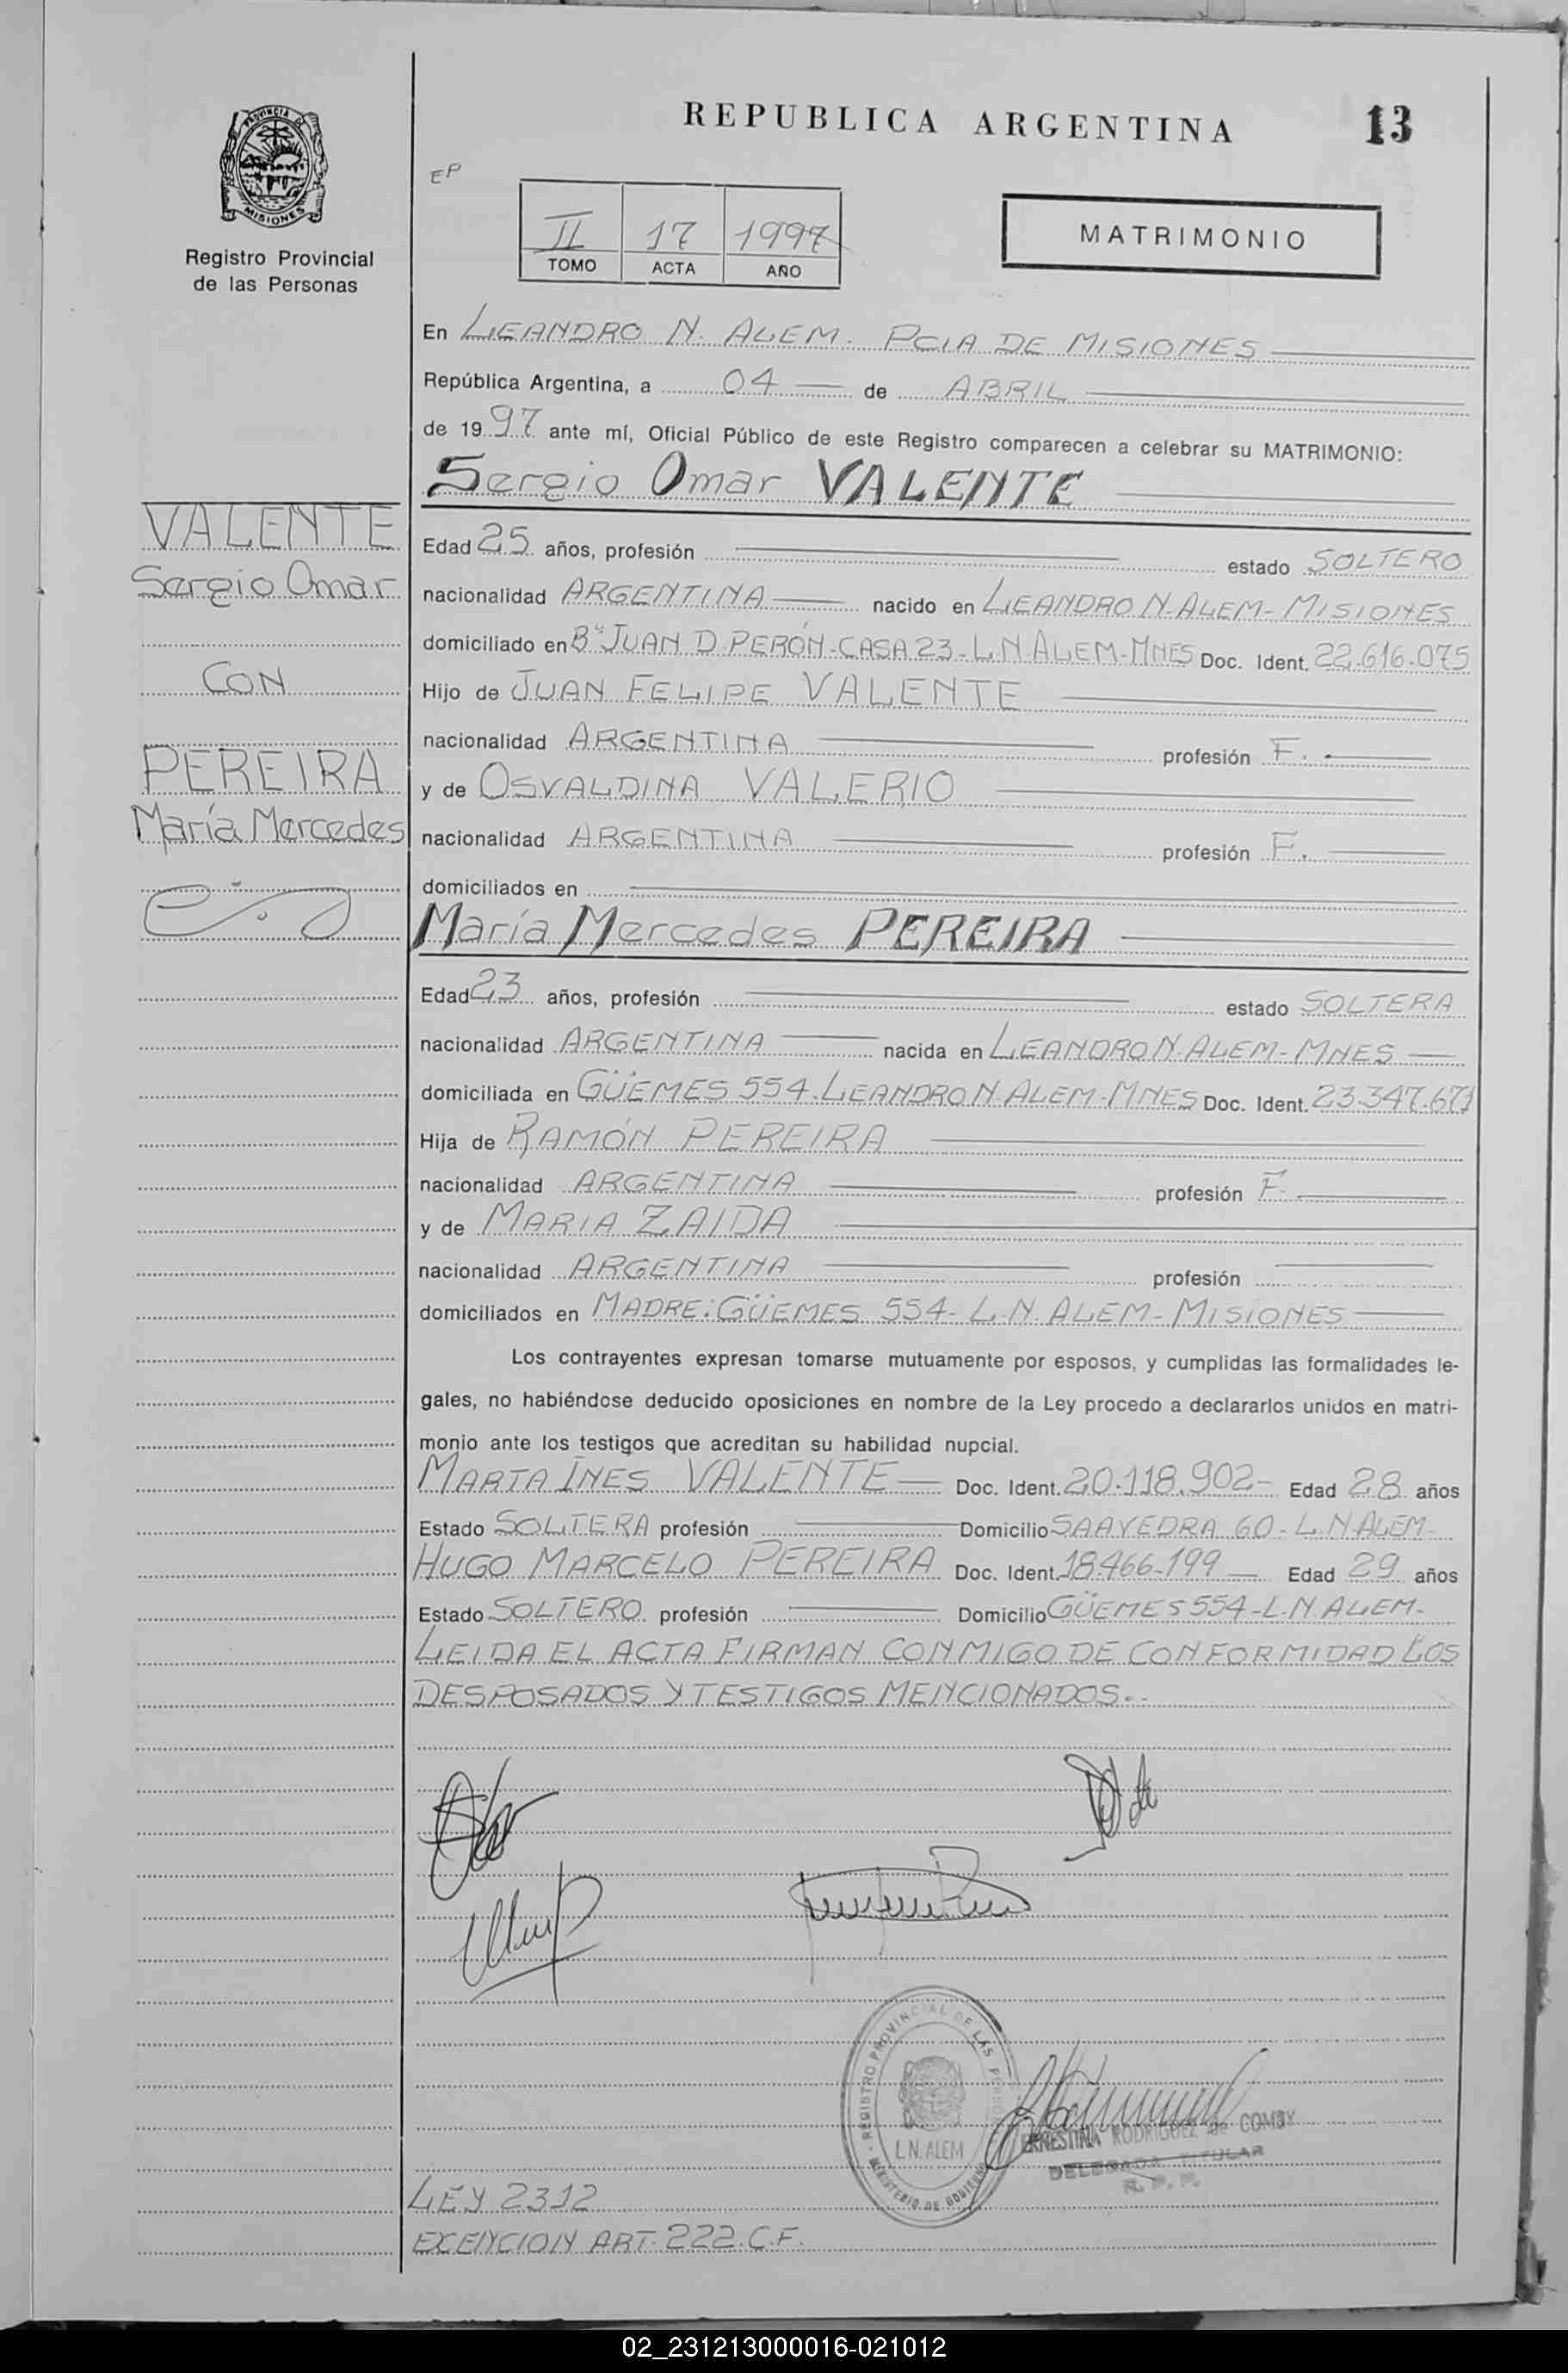 REPUBLICA ARGENTINA
13
PROVINCIA DE
MISIONES
Registro Provincial
de las Personas
EP
II 17 1997
TOMO ACTA AÑO
MATRIMONIO
En LEANDRO N. ALEM. PCIA DE MISIONES
República Argentina, a 04 de ABRIL
de 1997 ante mí, Oficial Público de este Registro comparecen a celebrar su MATRIMONIO:
Sergio Omar VALENTE
VALENTE
Sergio Omar
CON
PEREIRA
María Mercedes
Edad 25 años, profesión estado SOLTERO
nacionalidad ARGENTINA nacido en LEANDRO N. ALEM-MISIONES
domiciliado en Bº JUAN D. PERÓN-CASA 23-L.N ALEM-MNES Doc. Ident. 22.616.075
Hijo de JUAN FELIPE VALENTE
nacionalidad ARGENTINA profesión F.
y de OSVALDINA VALERIO
nacionalidad ARGENTINA profesión F.
domiciliados en
María Mercedes PEREIRA
Edad 23 años, profesión estado SOLTERA
nacionalidad ARGENTINA nacida en LEANDRO N. ALEM-MNES
domiciliada en GÜEMES 554. LEANDRO N. ALEM-MNES Doc. Ident. 23.347.671
Hija de RAMÓN PEREIRA
nacionalidad ARGENTINA profesión F.
y de MARIA ZAIDA
nacionalidad ARGENTINA profesión
domiciliados en MADRE: GÜEMES 554- L.N. ALEM-MISIONES
Los contrayentes expresan tomarse mutuamente por esposos, y cumplidas las formalidades le-
gales, no habiéndose deducido oposiciones en nombre de la Ley procedo a declararlos unidos en matri-
monio ante los testigos que acreditan su habilidad nupcial.
MARTA INES VALENTE Doc. Ident. 20.118.902- Edad 28 años
Estado SOLTERA profesión Domicilio SAAVEDRA 60-L.N ALEM-
HUGO MARCELO PEREIRA Doc. Ident. 18.466.199 Edad 29 años
Estado SOLTERO profesión Domicilio GÜEMES 554-L.N. ALEM-
LEIDA EL ACTA FIRMAN CONMIGO DE CONFORMIDAD LOS
DESPOSADOS Y TESTIGOS MENCIONADOS.-
REGISTRO PROVINCIAL DE LAS
L.N. ALEM
MINISTERIO DE GOBIERNO
ERNESTINA RODRIGUEZ de COMBY
DELEGADA TITULAR
R. P. P.
LEY 2312
EXENCION ART. 222. C.F.
02_231213000016-021012